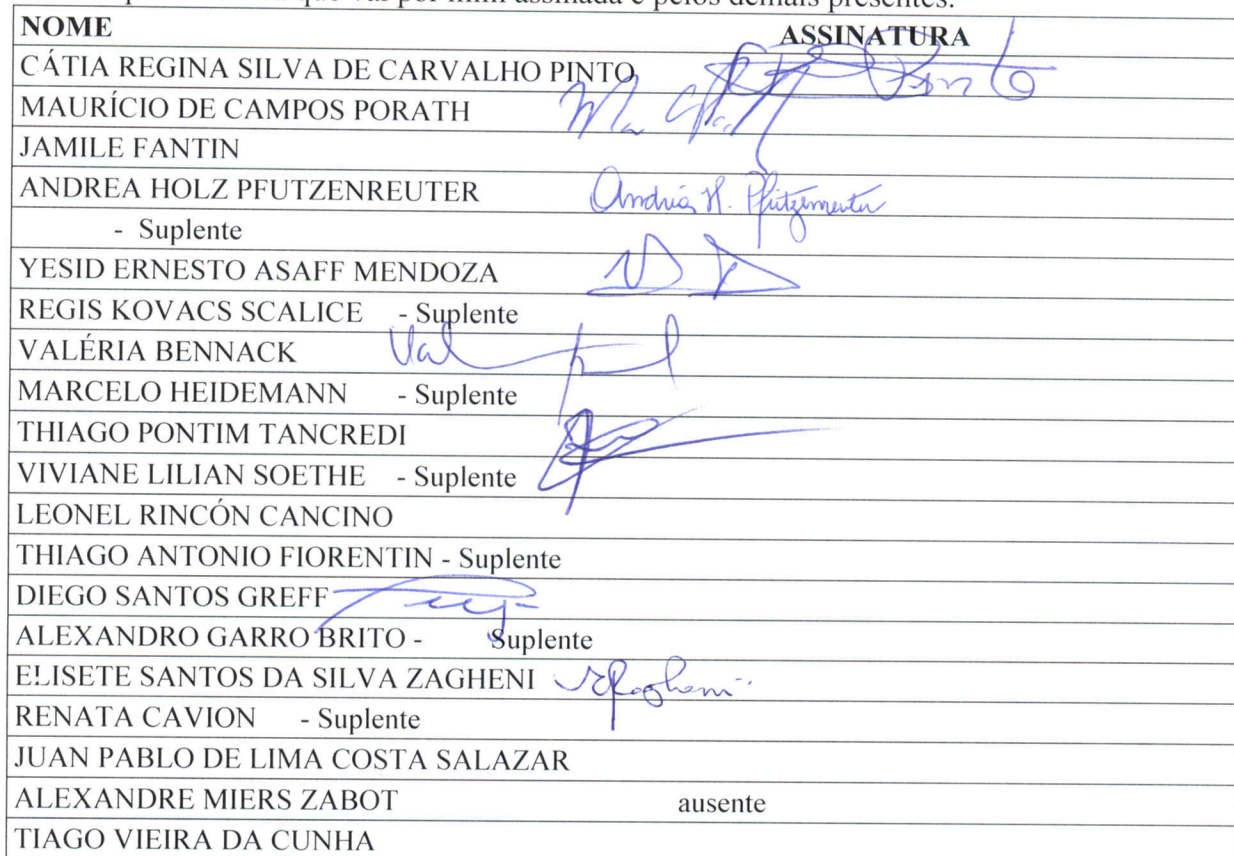 que vai por mim assinada e pelos demais presentes.
NOME ASSINATURA
CÁTIA REGINA SILVA DE CARVALHO PINTO Pinto
MAURÍCIO DE CAMPOS PORATH
JAMILE FANTIN
ANDREA HOLZ PFUTZENREUTER Andréa H. Pfutzenreuter
- Suplente
YESID ERNESTO ASAFF MENDOZA
REGIS KOVACS SCALICE - Suplente
VALÉRIA BENNACK Val
MARCELO HEIDEMANN - Suplente
THIAGO PONTIM TANCREDI
VIVIANE LILIAN SOETHE - Suplente
LEONEL RINCÓN CANCINO
THIAGO ANTONIO FIORENTIN - Suplente
DIEGO SANTOS GREFF
ALEXANDRO GARRO BRITO - Suplente
ELISETE SANTOS DA SILVA ZAGHENI
RENATA CAVION - Suplente
JUAN PABLO DE LIMA COSTA SALAZAR
ALEXANDRE MIERS ZABOT ausente
TIAGO VIEIRA DA CUNHA